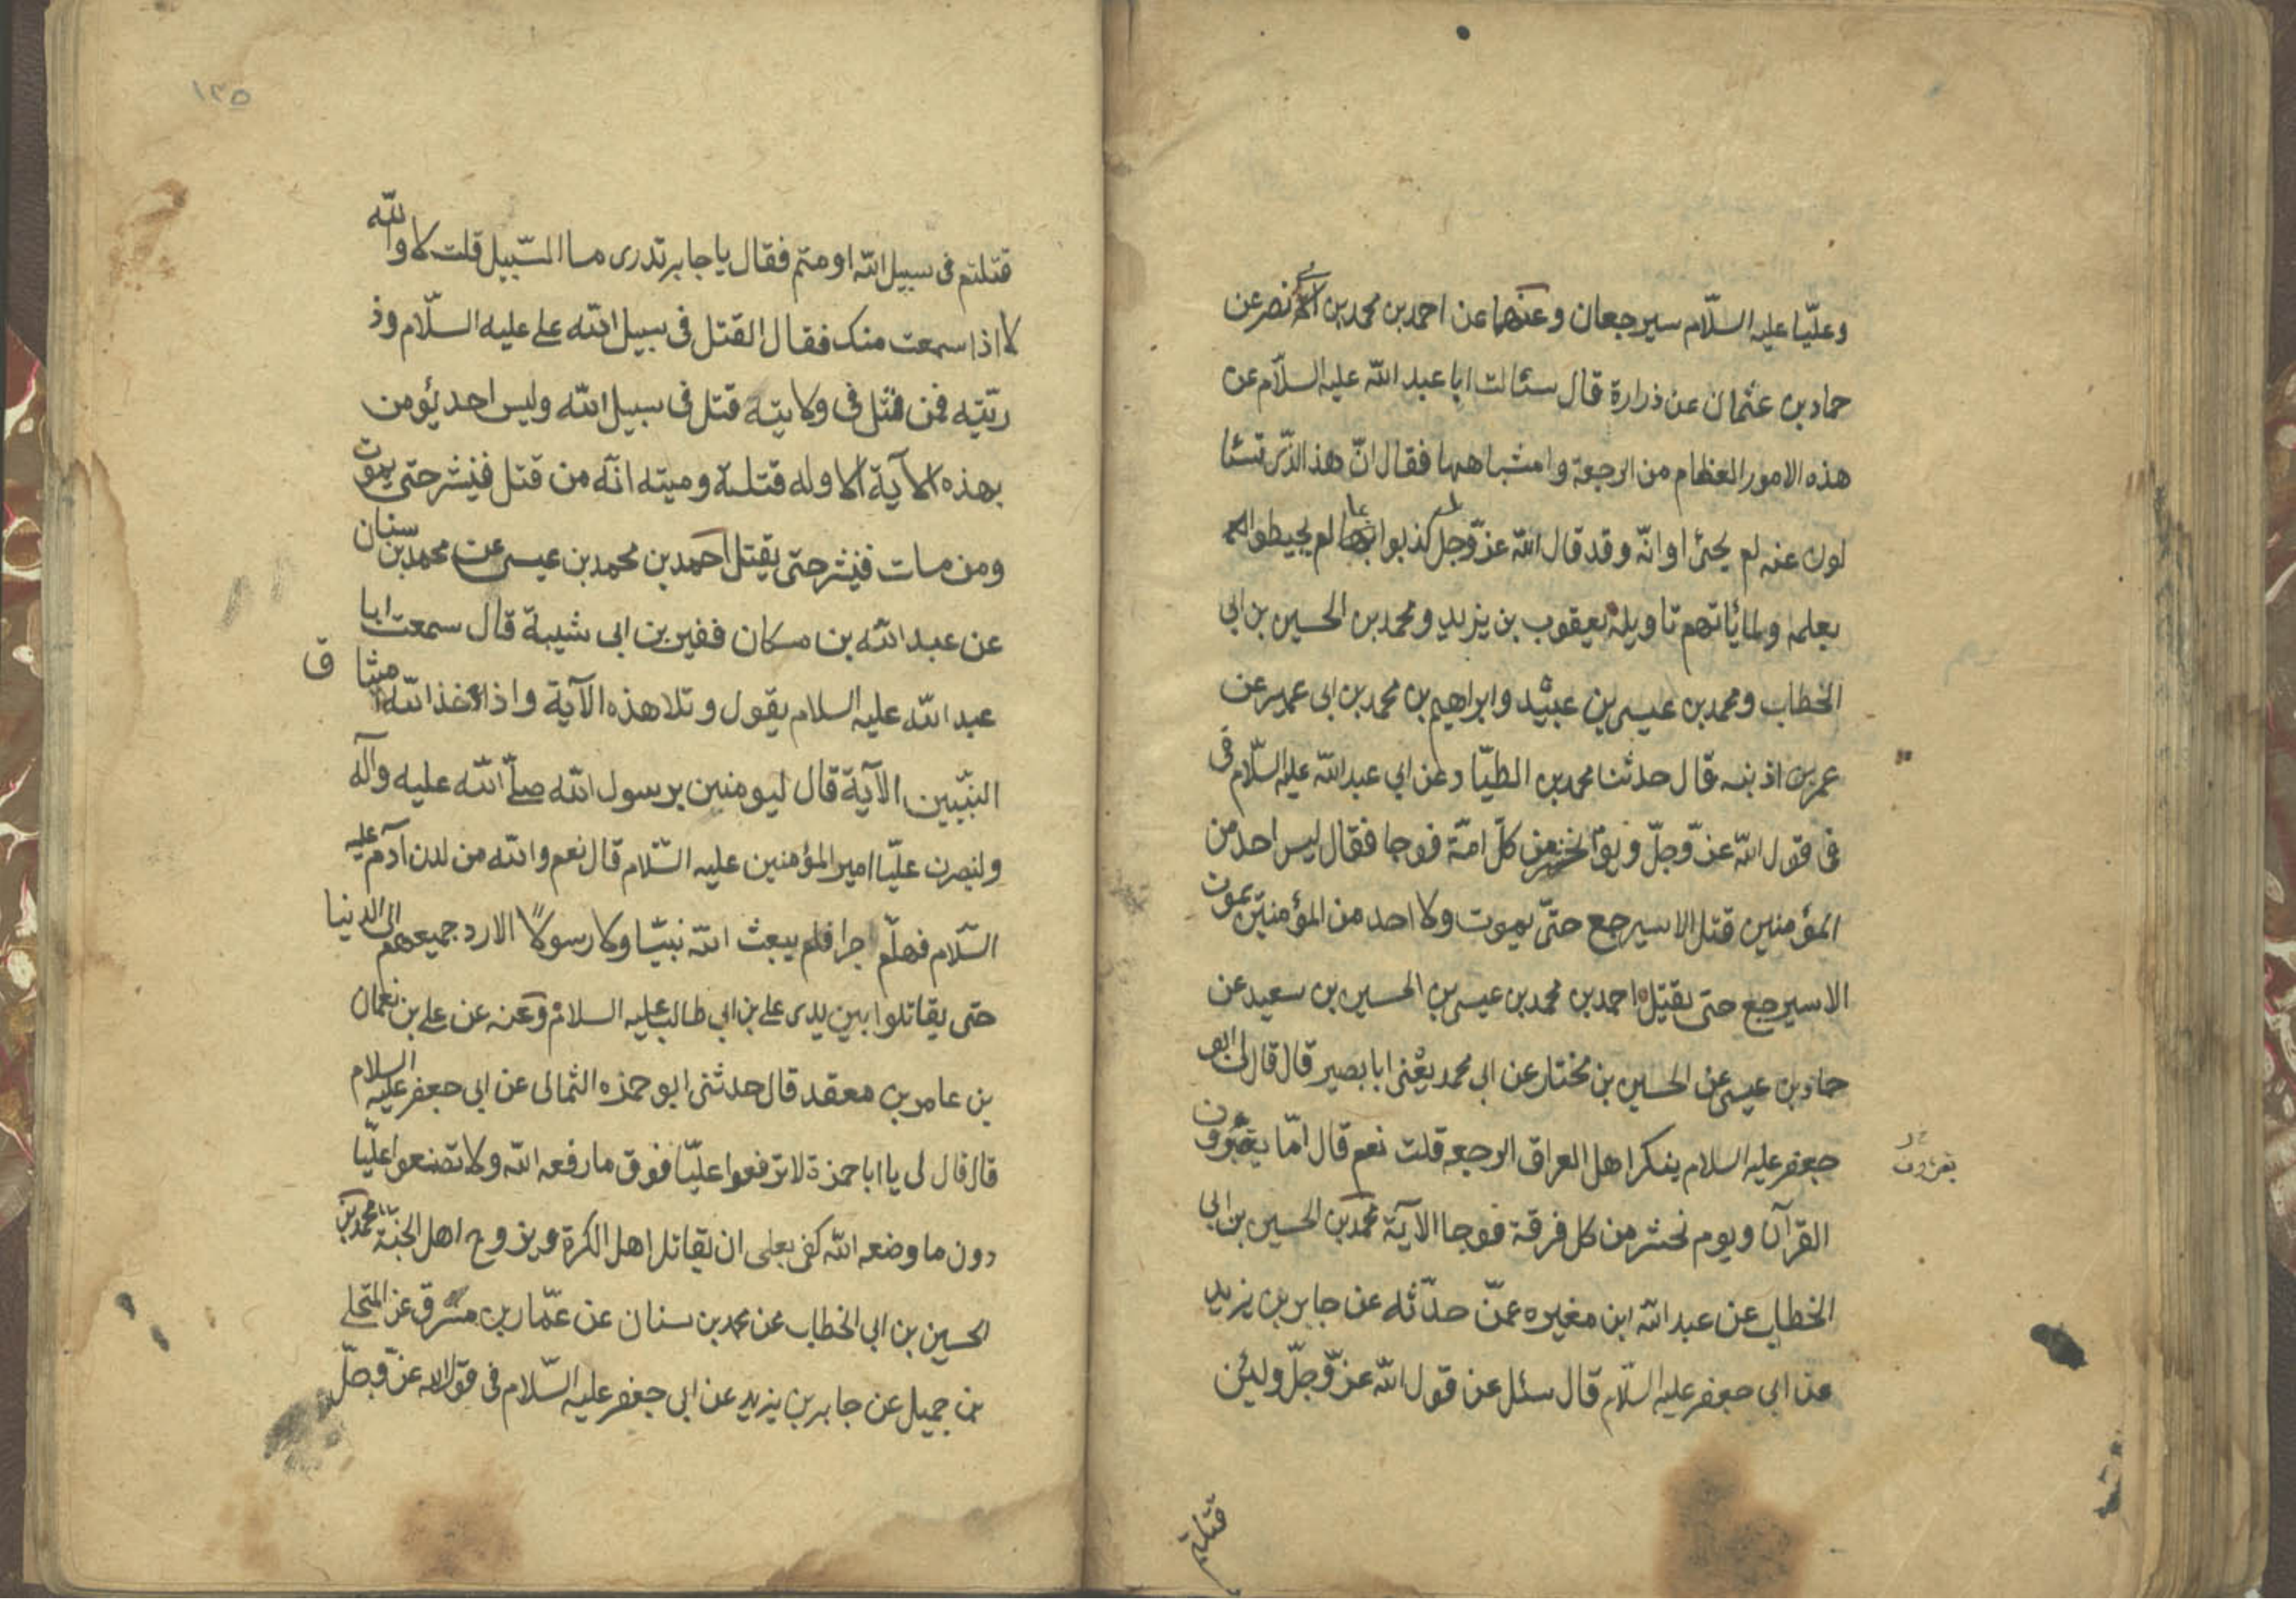 وعليّا عليه السلّام سيرجعان وعنهما عن احمد بن محمد بن ابى نصر عن
حماد بن عثمان عن ذرارة قال سئالت ابا عبد الله عليه السلّام عن
هذه الامور العظام من الرجعة وامشباهها فقال انّ هذا الذّى تسئا
لون عنه لم يجئ اوانّه وقد قال الله عزّ وجلّ بل كذبوا بما لم يحيطوا
بعلمه ولما يأتهم تاويله يعقوب بن يزيد ومحمد بن الحسين بن ابى
الخطاب ومحمد بن عيسى بن عبيد وابراهيم بن محمد بن ابى عمير عن
عمر بن اذينه قال حدثنا محمد بن الطيّار عن ابى عبد الله عليه السلّام فى
فى قول الله عزّ وجلّ ويوم نحشر من كلّ امّة فوجا فقال ليس احد من
المؤمنين قتل الا سيرجع حتّى يموت ولا احد من المؤمنين يموت
الا سيرجع حتى يقتل احمد بن محمد بن عيسى بن الحسين بن سعيد عن
حماد بن عيسى عن الحسين بن مختار عن ابى محمد يعنى ابا بصير قال قال لى ابو
جعفر عليه السلام ينكر اهل العراق الرجعه قلت نعم قال امّا يقرؤن
يقرؤن
القرآن ويوم نحشر من كل فرقة فوجا الآية محمد بن الحسين بن ابى
الخطاب عن عبد الله ابن مغيره عمّن حدّثه عن جابر بن يزيد
عن ابى جعفر عليه السلّام قال سئل عن قول الله عزّ وجلّ ولئن
قتلتم
١٣٥
قتلتم فى سبيل الله او متم فقال يا جابر تدرى ما السّبيل قلت لا والله
لا اذا سمعت منك فقال القتل فى سبيل الله على عليه السلّام وذ
ريّته فمن قتل فى ولايته قتل فى سبيل الله وليس احد يؤمن
بهذه الآية الا وله قتلة وميته انّه من قتل فينشر حتى يموت
ومن مات فينشر حتى يقتل احمد بن محمد بن عيسى عن محمد بن سنان
عن عبد الله بن مسكان ففين بن ابى شيبة قال سمعت ابا
عبد الله عليه السلام يقول وتلا هذه الآية واذا اخذ الله ميثا ق
النبّيين الآية قال ليومنين برسول الله صلّى الله عليه وآله
ولنصرن عليّا امير المؤمنين عليه السّلام قال نعم والله من لدن آدم عليه
السّلام فهلّم جرا فلم يبعث الله نبيّا ولا رسولاً الا رد جميعهم الى الدنيا
حتى يقاتلوا بين يدى على بن ابى طالب عليه السلام وعنه عن على بن نعمان
بن عامر بن معقد قال حدثنى ابو حمزه الثمالى عن ابى جعفر عليه السلام
قال قال لى يا ابا حمزة لا ترفعوا عليّا فوق ما رفعه الله ولا تضعوا عليّا
دون ما وضعه الله كفى بعلى ان يقاتل اهل الكرة ويزوج اهل الجنّة محمد بن
الحسين بن ابى الخطاب عن محمد بن سنان عن عمّار بن مسرق عن المنخلى
بن جميل عن جابر بن يزيد عن ابى جعفر عليه السّلام فى قول الله عزّ وجلّ